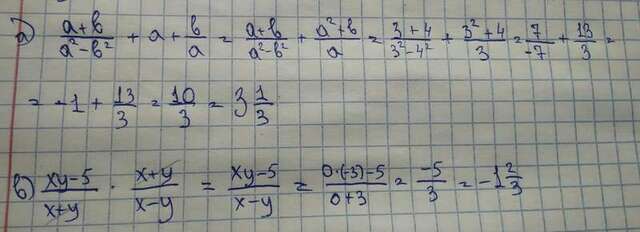 а) (a+b)/(a²-b²) + a + b/a = (a+b)/(a²-b²) + (a²+b)/a = (3+4)/(3²-4²) + (3²+4)/3 = 7/-7 + 13/3 =
= -1 + 13/3 = 10/3 = 3 1/3
в) (xy-5)/(x+y) · (x+y)/(x-y) = (xy-5)/(x-y) = (0·(-3)-5)/(0+3) = -5/3 = -1 2/3